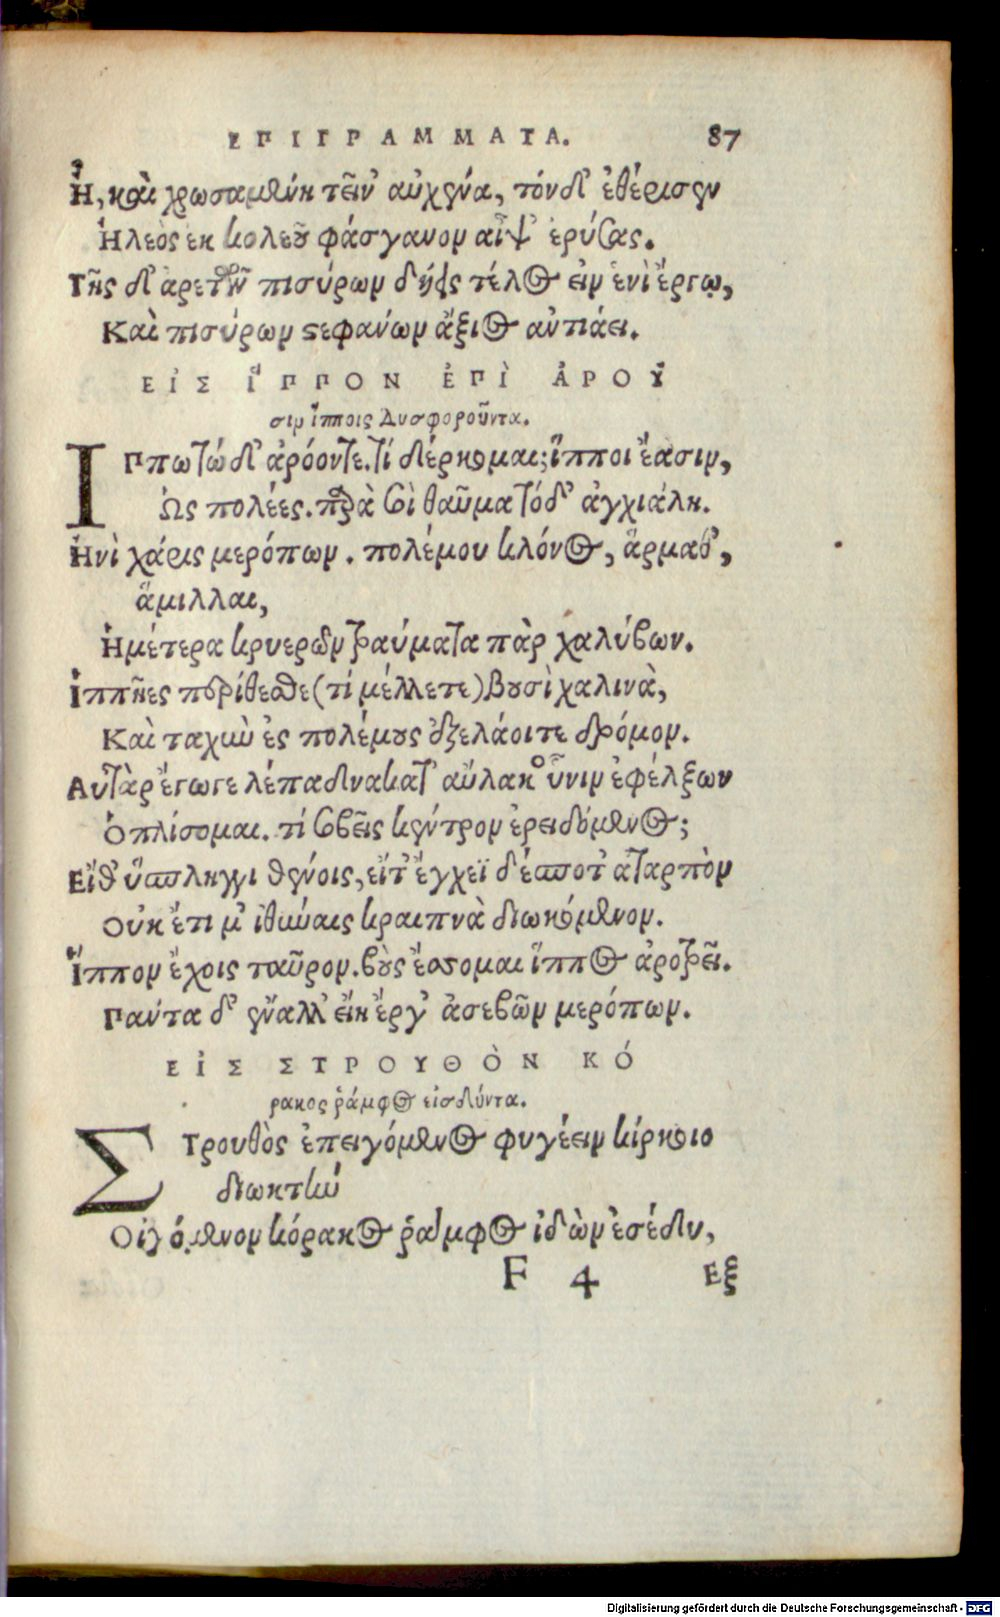 ΕΠΙΓΡΑΜΜΑΤΑ. 87
Ἦ, καὶ χρωσαμένη τεῒν αὐχένα, τόνδ' ἐθέρισεν
Ἠλεὸς ἐκ κολεοῦ φάσγανον αἶψ' ἐρύσας.
Τῆς δ' ἀρετῶν πισύρων δήεις τέλος εἰν ἑνὶ ἔργῳ,
Καὶ πισύρων στεφάνων ἄξιος ἀντιάει.
ΕΙ᾿Σ Ι῞ΠΠΟΝ Ε᾿ΠΙ` Α᾿ΡΟΥ῀
σιν ἵπποις δυσφοροῦντα.
ΙΠπω τώδ' ἀρόοντε. τί δέρκομαι; ἵπποι ἔασιν,
Ὡς πολέες. παρὰ σοὶ θαῦμα τόδ' ἀγχιάλη.
Ἡνὶ χάρις μερόπων. πολέμου κλόνος, ἅρμαθ',
ἅμιλλαι,
Ἡμέτερα κρυερῶν τραύματα πὰρ χαλύβων.
Ἱππῆες περίθεσθε (τί μέλλετε) βουσὶ χαλινὰ,
Καὶ ταχὺν ἐς πολέμους ἐξελάοιτε δρόμον.
Αὐτὰρ ἔγωγε λέπαδνα κατ' αὔλακος ὕνιν ἐφέλξων
Ὁπλίσομαι. τί σβεῖς κέντρον ἐρειδόμενος;
Εἴθ' ὕσπληγγι θένοις, εἴτ' ἔγχεϊ δέσποτ' ἀταρπὸν
Οὐκ ἔτι μ' ἰθύναις κραιπνὰ διωκόμενον.
Ἵππον ἔχοις ταῦρον. βοῦς ἔσσομαι ἵππος ἀροτρεῖ.
Πάντα δ' ἔναλλ' εἴκη ἔργ' ἀσεβῶν μερόπων.
ΕΙ᾿Σ ΣΤΡΟΥΘΟ`Ν ΚΟ´
ρακος ῥάμφος εἰσδύντα.
ΣΤρουθὸς ἐπειγόμενος φυγέειν κίρκοιο
διωκτὺν
Οἰγόμενον κόρακος ῥάμφος ἰδὼν ἐσέδυ,
F 4 Εξ
Digitalisierung gefördert durch die Deutsche Forschungsgemeinschaft - DFG